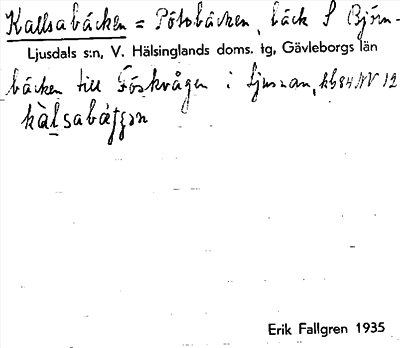 Kallsabäcken = Pötobäcken, bäck S Björn-
Ljusdals s:n, V. Hälsinglands doms. tg, Gävleborgs län
bäcken till Föskvågen i Ljusnan, kb 84 NV 12
Erik Fallgren 1935